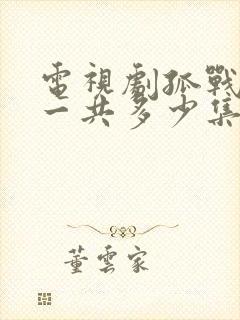 電視劇孤戰
一共多少集
董雲家